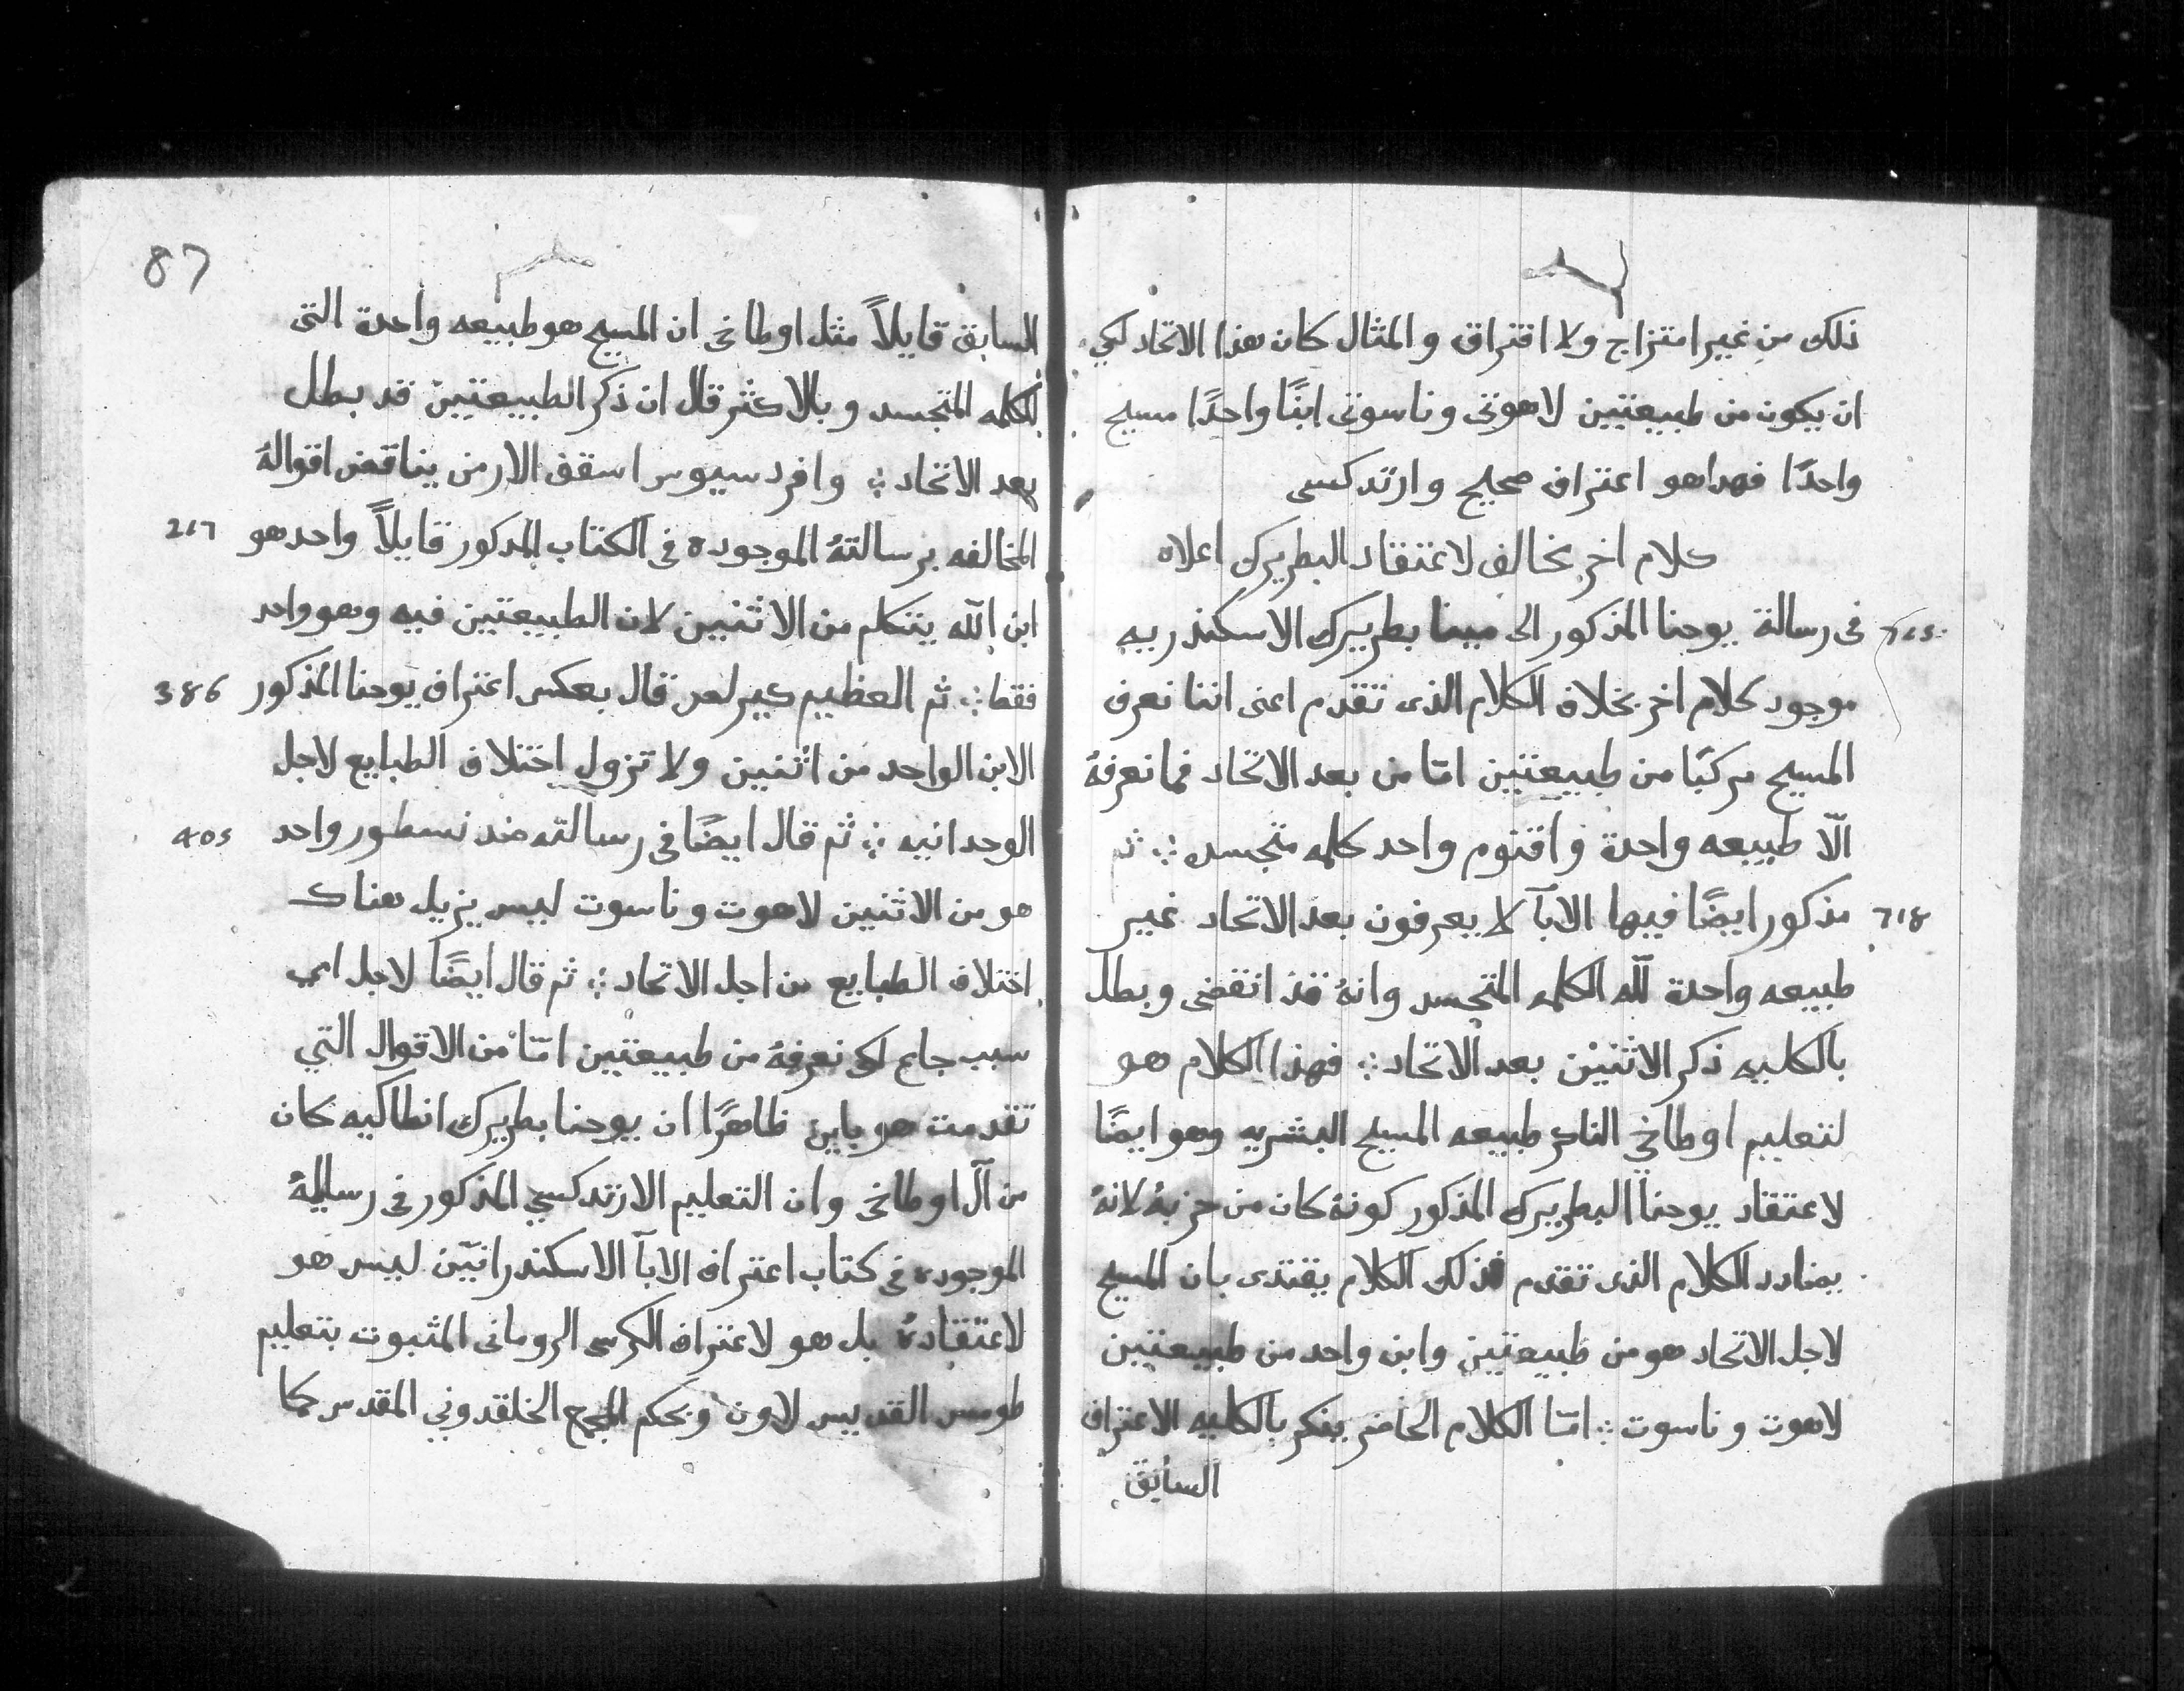 ذلك من غير امتزاج ولا افتراق والمثال كان هذا الاتحاد لكي
ان يكون من طبيعتين لاهوتى وناسوتى ابنًا واحدًا مسيح
واحدًا فهداهو اعتراف صحيح وارتدكسى
كلام اخر بخالف لاعتقاد البطريرك اعلاه
فى رسالة يوحنا المذكور الى مينا بطريرك الاسكندريه
موجود كلام اخر بخلاف الكلام الذى تقدم اعنى اننا نعرف
المسيح مركبًا من طبيعتين امّا من بعد الاتحاد فما نعرفهُ
الّا طبيعه واحدة واقنوم واحد كلمه متجسده ⁘ ثم
718 مذكور ايضًا فيها الابآ لا يعرفون بعد الاتحاد غير
طبيعه واحدة لله الكلمه المتجسد وانهُ قد انقضى وبطل
بالكليه ذكر الاثنيْن بعد الاتحاد ⁘ فهذا الكلام هو
لتعليم اوطاخي الناكر طبيعه المسيح البشريه وهو ايضًا
لاعتقاد يوحنا البطريرك المذكور كونهُ كان من حزبهُ لانهُ
بضادد الكلام الذى تقدم فذلك الكلام يقتدى بان المسيح
لاجل الاتحاد هو من طبيعتين وابن واحد من طبيعتين
لاهوت وناسوت ⁘ امّا الكلام الحاضر ينكر بالكليه الاعتراف
السابق
87
السابق قايلاً مثل اوطاخى ان المسيح هو طبيعه واحدة التى
للكلمه المتجسد وبالاكثر قال ان ذكر الطبيعتين قد بطل
بعد الاتحاد ⁘ وافردسيوس اسقف الارمن يناقض اقوالهُ
المخالفه برسالتهُ الموجوده فى الكتاب المدكور قايلاً واحد هو 217
ابن الله يتكلم من الاثنين لان الطبيعتين فيه وهو واحد
فقط ⁘ ثم العظيم كيرلص قال بعكس اعتراف يوحنا المذكور 386
الابن الواحد من اثنين ولا تزول اختلاف الطبايع لاجل
الوحدانيه ⁘ ثم قال ايضًا فى رسالته ضد نسطور واحد 405
هو من الاثنين لاهوت وناسوت ليس يزيل هناك
اختلاف الطبايع من اجل الاتحاد ⁘ ثم قال ايضًا لاجل اى
سبب جامع لكى نعرفهُ من طبيعتين امّا من الاقوال التي
تقدمت هو باين ظاهرًا ان يوحنا بطريرك انطاكيه كان
من آل اوطاخى وان التعليم الارتدكسي المذكور فى رسالتهُ
الموجوده فى كتاب اعتراف الابآ الاسكندرانيّن ليس هو
لاعتقادهُ بل هو لاعتراف الكرسى الرومانى المثبوت بتعليم
طومس القديس لاون وبحكم المجمع الخلقدوني المقدس كما